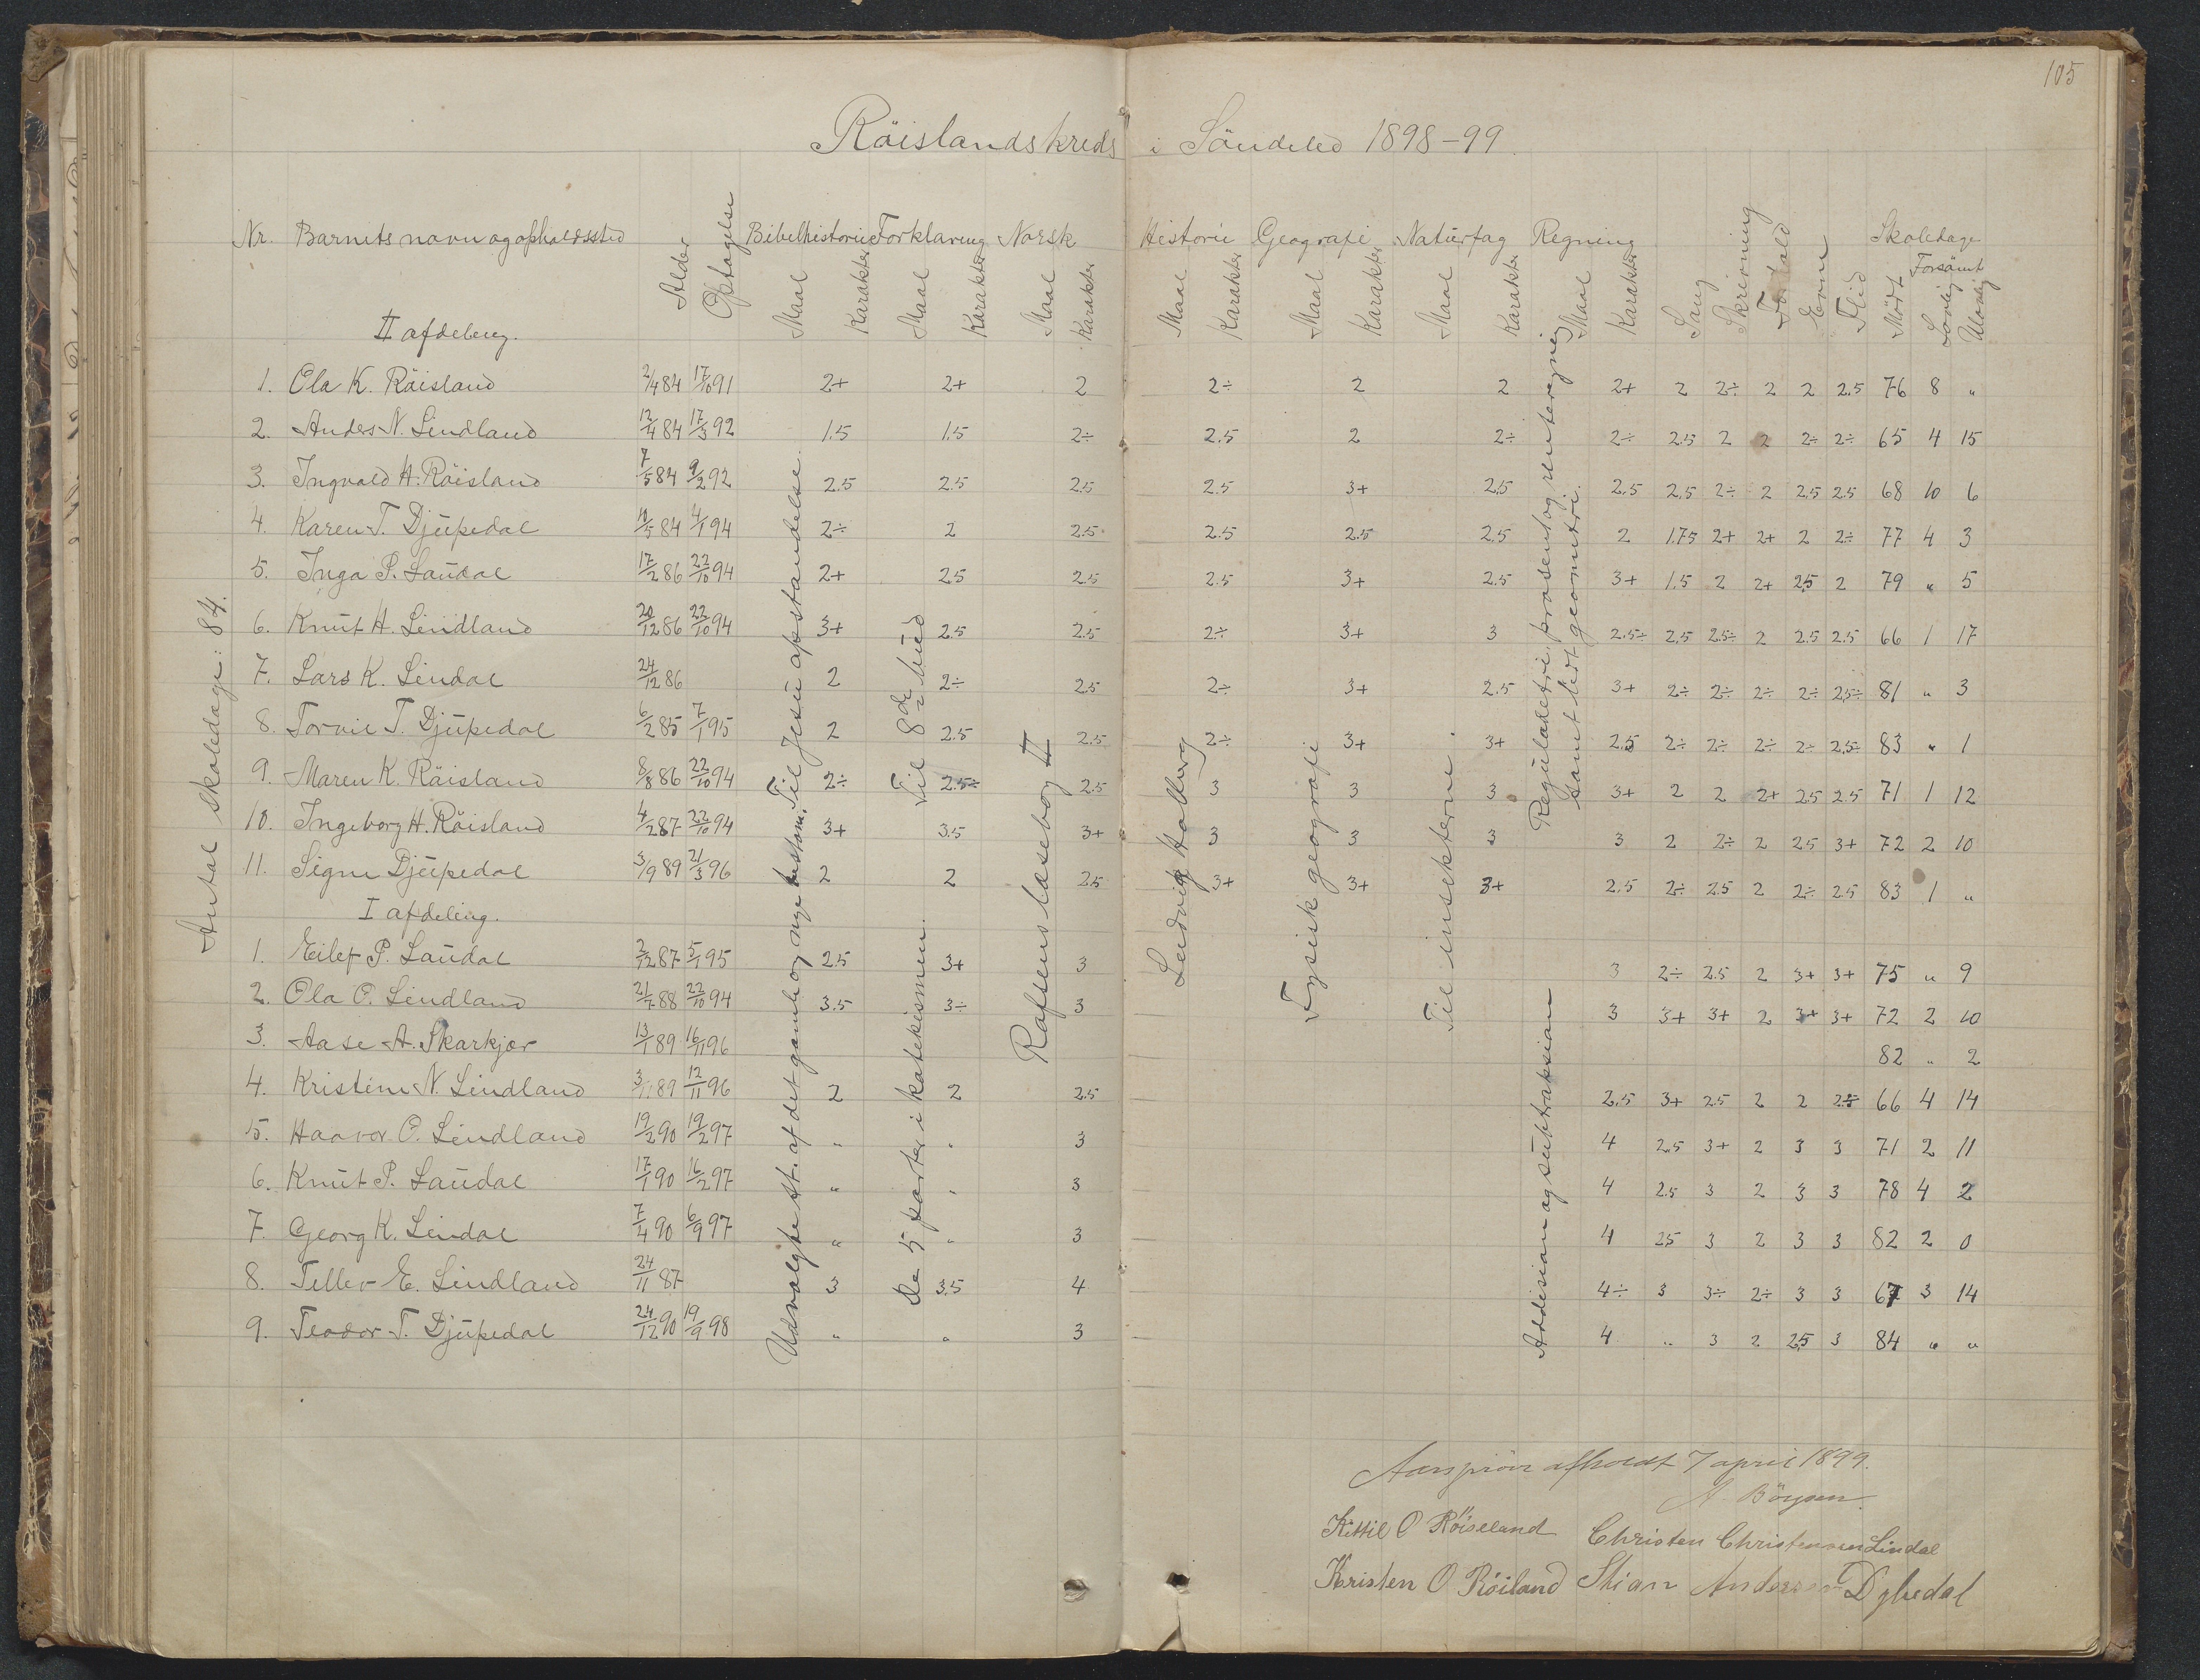 105
Röislandskreds i Söndeled 1898-99.
Nr. Barnets navn og opholdssted Alder Optagelse Bibelhistorie Forklaring Norsk Historie Geografi Naturfag Regning Sang Skrivning Forhold Evne Flid Skoledage
Maal Karakter Maal Karakter Maal Karakter Maal Karakter Maal Karakter Maal Karakter Maal Karakter Mödt Forsömt Lovlig Ulovlig
Antal skoledage: 84.
II afdeling.
1. Ola K. Röisland 2/4 84 17/10 91 2+ 2+ 2 2÷ 2 2 2+ 2 2÷ 2 2 2.5 76 8 "
2. Anders N. Lindland 12/4 84 17/3 92 1.5 1.5 2÷ 2.5 2 2÷ 2÷ 2.5 2 2 2÷ 2÷ 65 4 15
3. Ingvald H. Röisland 7/5 84 9/2 92 2.5 2.5 2.5 2.5 3+ 2.5 2.5 2.5 2÷ 2 2.5 2.5 68 10 6
4. Karen T. Djupedal 11/5 84 4/1 94 2÷ 2 2.5 2.5 2.5 2.5 2 1.75 2+ 2+ 2 2÷ 77 4 3
5. Inga P. Laudal 17/2 86 22/10 94 2+ 2.5 2.5 2.5 3+ 2.5 3+ 1.5 2 2+ 2.5 2 79 " 5
6. Knut H. Lindland 20/12 86 22/10 94 3+ 2.5 2.5 2÷ 3+ 3 2.5÷ 2.5 2.5÷ 2 2.5 2.5 66 1 17
7. Lars K. Lindal 24/12 86 2 2÷ 2.5 2÷ 3+ 2.5 3+ 2÷ 2÷ 2÷ 2÷ 2.5÷ 81 " 3
8. Torvil T. Djupedal 6/2 85 7/1 95 2 2.5 2.5 2÷ 3+ 3+ 2.5 2÷ 2÷ 2÷ 2÷ 2.5÷ 83 " 1
9. Maren K. Röisland 8/8 86 22/10 94 2÷ 2.5÷ 2.5 3 3 3 3+ 2 2 2+ 2.5 2.5 71 1 12
10. Ingeborg H. Röisland 4/2 87 22/10 94 3+ 3.5 3+ 3 3 3 3 2 2÷ 2 2.5 3+ 72 2 10
11. Signe Djupedal 3/9 89 21/3 96 2 2 2.5 3+ 3+ 3+ 2.5 2÷ 2.5 2 2÷ 2.5 83 1 "
I afdeling.
1. Eilef P. Laudal 2/12 87 5/1 95 2.5 3+ 3 3 2÷ 2.5 2 3+ 3+ 75 " 9
2. Ola O. Lindland 21/7 88 22/10 94 3.5 3÷ 3 3 3+ 3+ 2 3+ 3+ 72 2 10
3. Aase A. Skarkjær 13/1 89 16/11 96 82 " 2
4. Kristine N. Lindland 89 12/11 96 2 2 2.5 2.5 3+ 2.5 2 2 2.5 66 4 14
5. Haavor O. Lindland 19/2 90 19/2 97 " " 3 4 2.5 3+ 2 3 3 71 2 11
6. Knut P. Laudal 17/1 90 16/2 97 " " 3 4 2.5 3 2 3 3 78 4 2
7. Georg K. Lindal 7/4 90 6/9 97 " " 3 4 2.5 3 2 3 3 82 2 0
8. Tellev E. Lindland 24/11 87 3 3.5 4 4÷ 3 3÷ 2÷ 3 3 67 3 14
9. Teodor T. Djupedal 24/12 90 19/9 98 " " 3 4 " 3 2 2.5 3 84 " "
Til Jesu opstandelse.
Udvalgte st. af det gamle og nye testam.
Til 8de bud
De 5 parter i katekismen.
Rafsens læsebog II
Ludvig Holberg
Fysisk geografi
Til insekterne.
Reguladetri, prosent og rentereging
samt lidt geometri.
Addision og subtraksion
Aarspröve afholdt 7 april 1899.
A. Böysen.
Kittil O Röiseland Christen Christensen Lindal
Kristen O Röiland Stian Andersen Dybedal